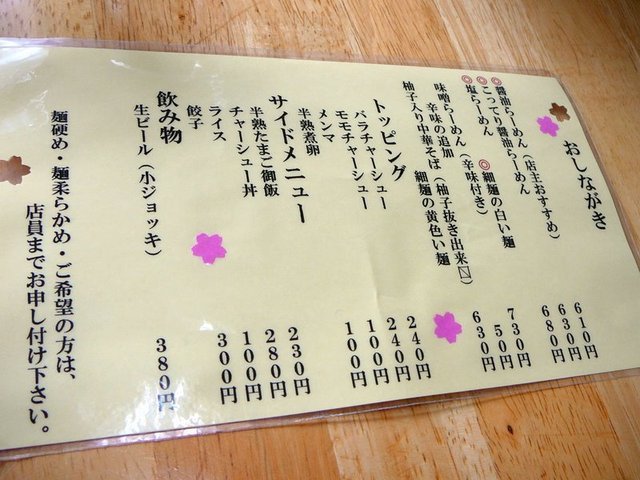 おしながき
◎醤油らーめん（店主おすすめ） 610円
◎こってり醤油らーめん 630円
◎塩らーめん ◎細麺の白い麺 680円
味噌らーめん（辛味付き） 730円
辛味の追加 50円
（柚子抜き出来〼）
柚子入り中華そば 細麺の黄色い麺 630円
トッピング
バラチャーシュー 240円
モモチャーシュー 240円
メンマ 100円
半熟煮卵 100円
サイドメニュー
半熟たまご御飯 230円
チャーシュー丼 280円
ライス 100円
餃子 300円
飲み物
生ビール（小ジョッキ） 380円
麺硬め・麺柔らかめ・ご希望の方は、
店員までお申し付け下さい。